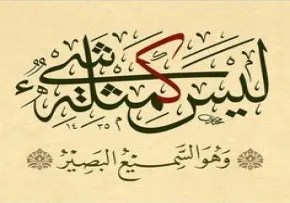 لَيْسَ كَمِثْلِهِ شَيْءٌ
١٤٣٥ م
وَهُوَ السَّمِيعُ الْبَصِيرُ